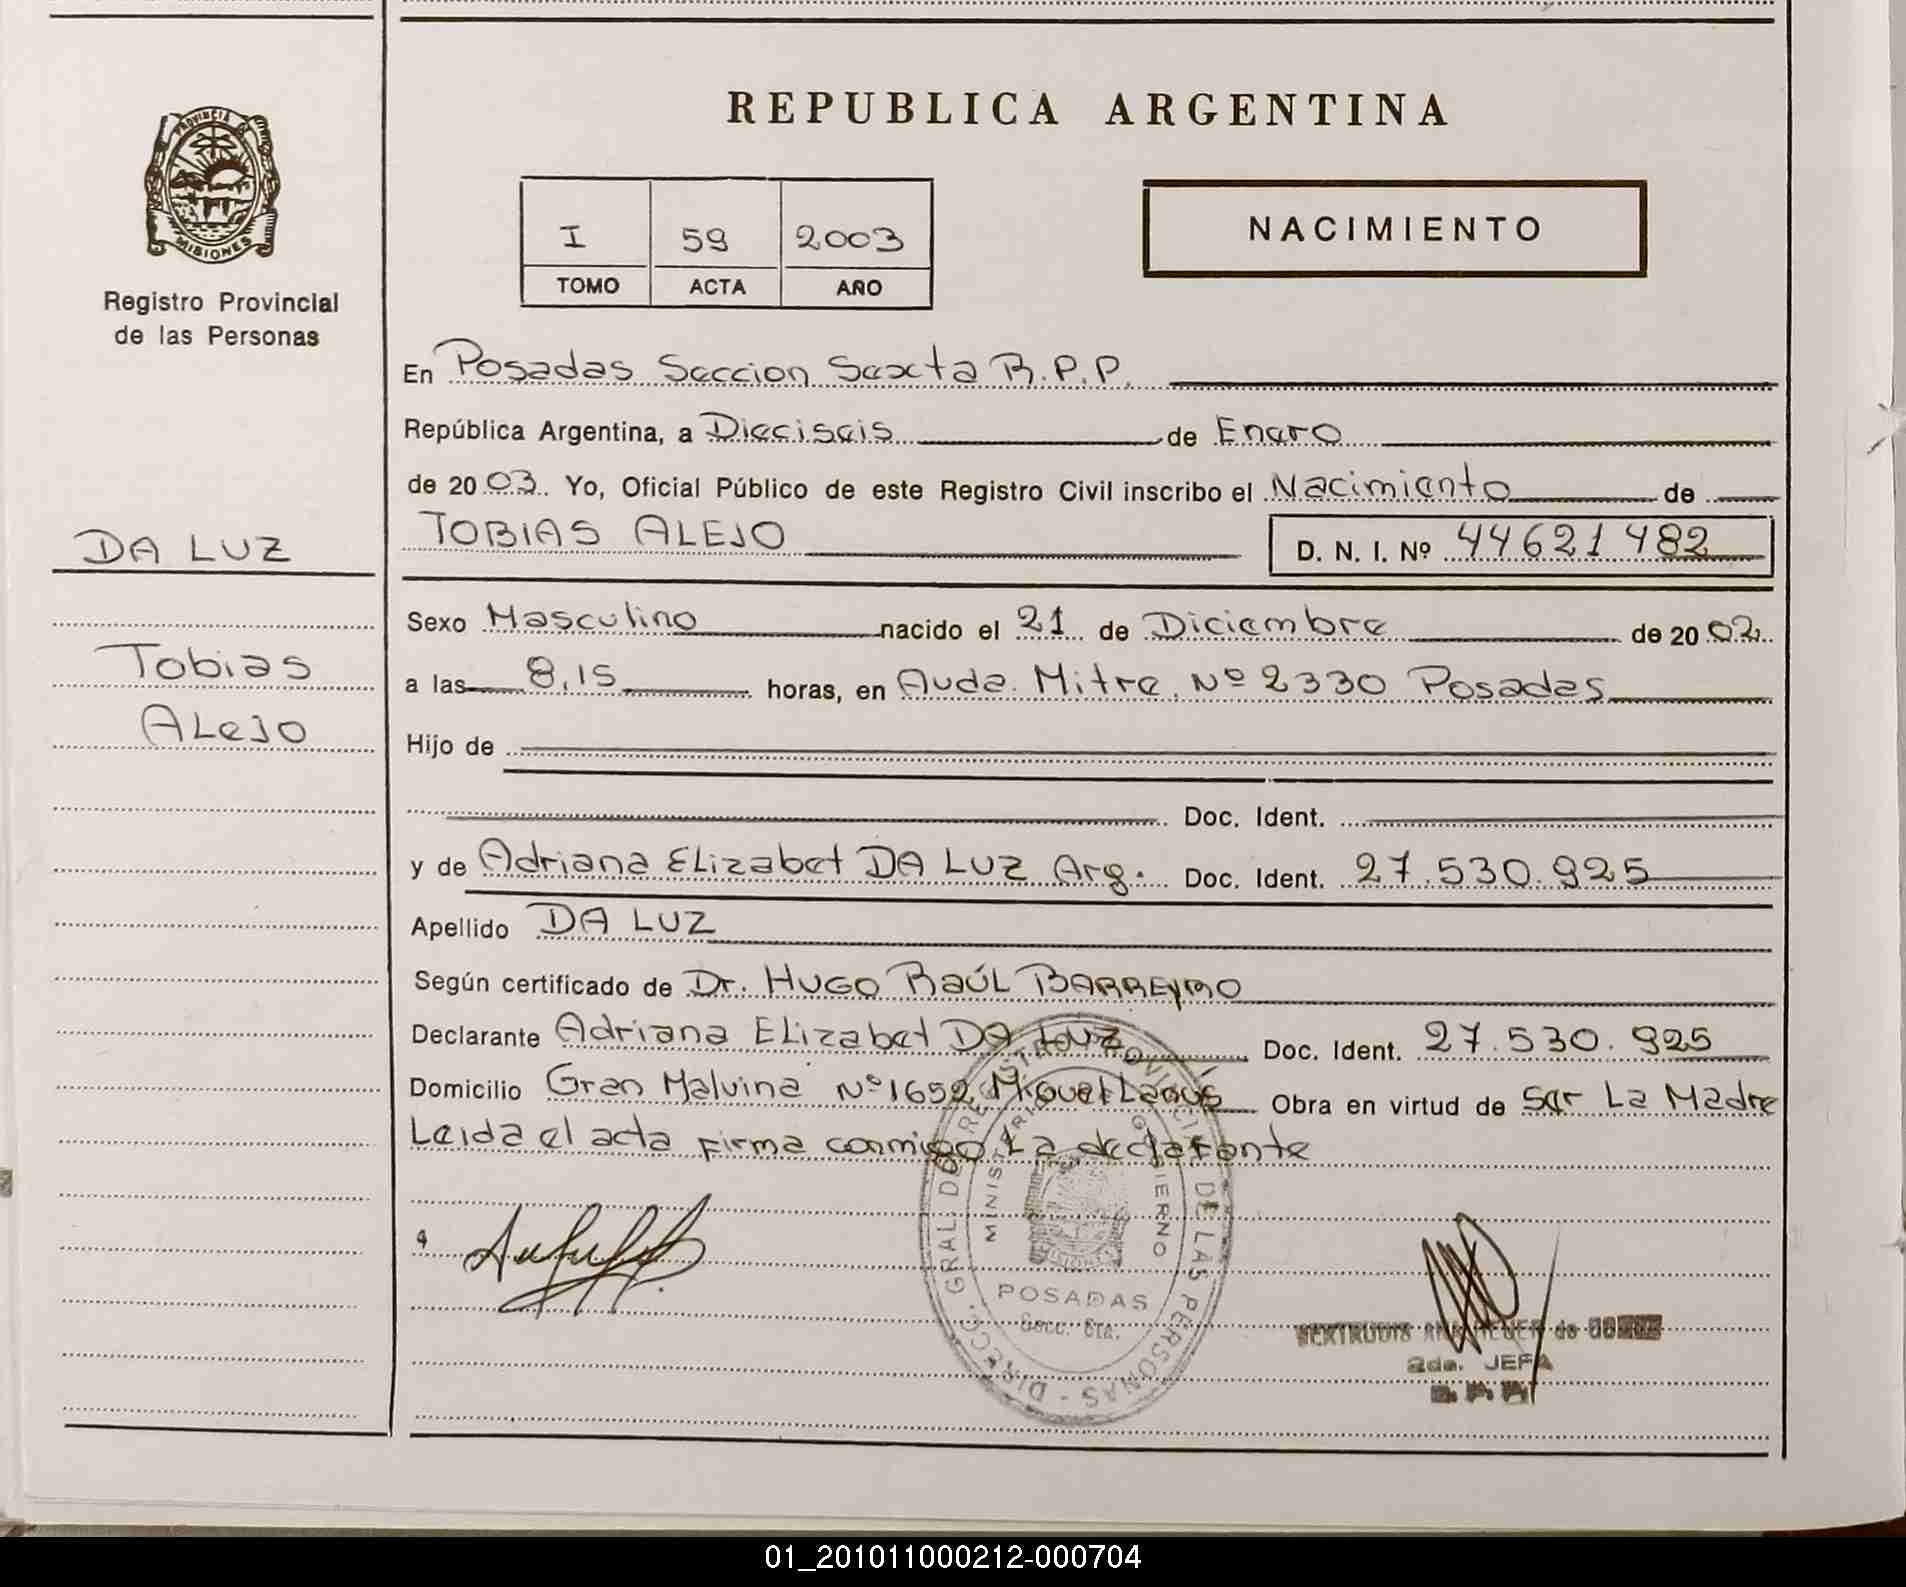 REPUBLICA ARGENTINA
PROVINCIA DE
MISIONES
Registro Provincial
de las Personas
I 59 2003
TOMO ACTA AÑO
NACIMIENTO
En Posadas Seccion Sexta R.P.P.
República Argentina, a Dieciseis de Enero
de 2003. Yo, Oficial Público de este Registro Civil inscribo el Nacimiento de
TOBIAS ALEJO D. N. I. Nº 44621482
DA LUZ
Tobias
ALeJo
Sexo Masculino nacido el 21 de Diciembre de 2002
a las 8,15 horas, en Avda. Mitre Nº 2330 Posadas
Hijo de
Doc. Ident.
y de Adriana ELizabet DA LUZ Arg. Doc. Ident. 27.530.925
Apellido DA LUZ
Según certificado de Dr. HUGO RaÚL BARREYRO
Declarante Adriana ELizabet DA LUZ Doc. Ident. 27.530.925
Domicilio Gran Malvina Nº 1652 Miguel Lanús Obra en virtud de Ser La Madre
Leida el acta Firma conmigo La declarante
DIRECC. GRAL. DE REGISTRO PROVINCIAL DE LAS PERSONAS -
MINISTERIO GOBIERNO
MISIONES
POSADAS
Secc. 6ta.
de
2da. JEFA
01_201011000212-000704